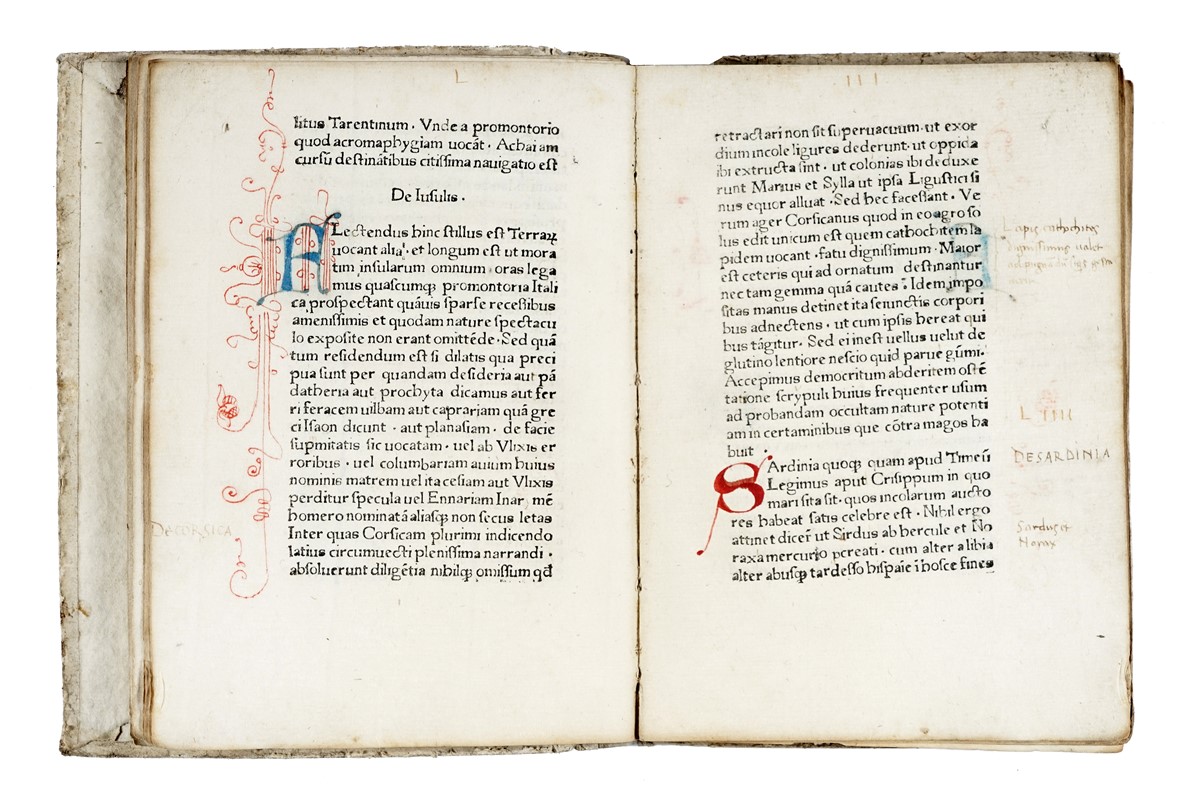 L
litus Tarentinum . Vnde a promontorio
quod acromaphygiam uocāt . Achaiam
cursū destinātibus citissima nauigatio est
De Iusulis .
FLectendus hinc stillus est Terraꝝ
uocant alia . et longum est ut mora
tim insularum omnium oras lega
mus quascumqꝫ promontoria Itali
ca prospectant quāuis sparse recessibus
amenissimis et quodam nature spectacu
lo exposite non erant omittēde . Sed quā
tum residendum est si dilatis qua preci
pua sunt per quandam desideria aut pā
datheria aut prochyta dicamus aut fer
ri feracem uilbam aut caprariam quā gre
ci Isaon dicunt . aut planasiam . de facie
supmitatis sic uocatam . uel ab Vlixis er
roribus . uel columbariam auium huius
nominis matrem uel ita cesiam aut Vlixis
perditur specula uel Ennariam Inar mē
homero nominatā aliasqꝫ non secus letas
Inter quas Corsicam plurimi indicendo
latius circumuecti plenissima narrandi .
absoluerunt diligētia nihilqꝫ omissum qđ
De CORSICA
III
retractari non sit superuacuum . ut exor
dium incole ligures dederunt . ut oppida
ibi extructa sint . ut colonias ibi deduxe
runt Marius et Sylla ut ipsa Ligustici si
nus equor alluat . Sed hec facessant . Ve
rum ager Corsicanus quod in eo agro so
lus edit unicum est quem cathochitem la
pidem uocant . fatu dignissimum . Maior
est ceteris qui ad ornatum destinantur
nec tam gemma quā cautes . Idem impo
sitas manus detinet ita se iunctis corpori
bus adnectens . ut cum ipsis hereat qui
bus tāgitur . Sed ei inest uellus uelut de
glutino lentiore nescio quid parue gūmi .
Accepimus democritum abderitem ostē
tatione scrypuli huius frequenter usum
ad probandam occultam nature potenti
am in certaminibus que cōtra magos ha
buit .
SArdinia quoqꝫ quam apud Timeū
Legimus aput Crisippum in quo
mari sita sit . quos incolarum aucto
res habeat satis celebre est . Nihil ergo
attinet dicer̄ ut Sirdus ab hercule et No
raxa mercurio pcreati . cum alter a libia
alter abusqꝫ tardesso hispaīe ī hosce fines
Lapis cathochites
dignissimus ualet
L IIII
DE SARDINIA
Sardus et
Norax